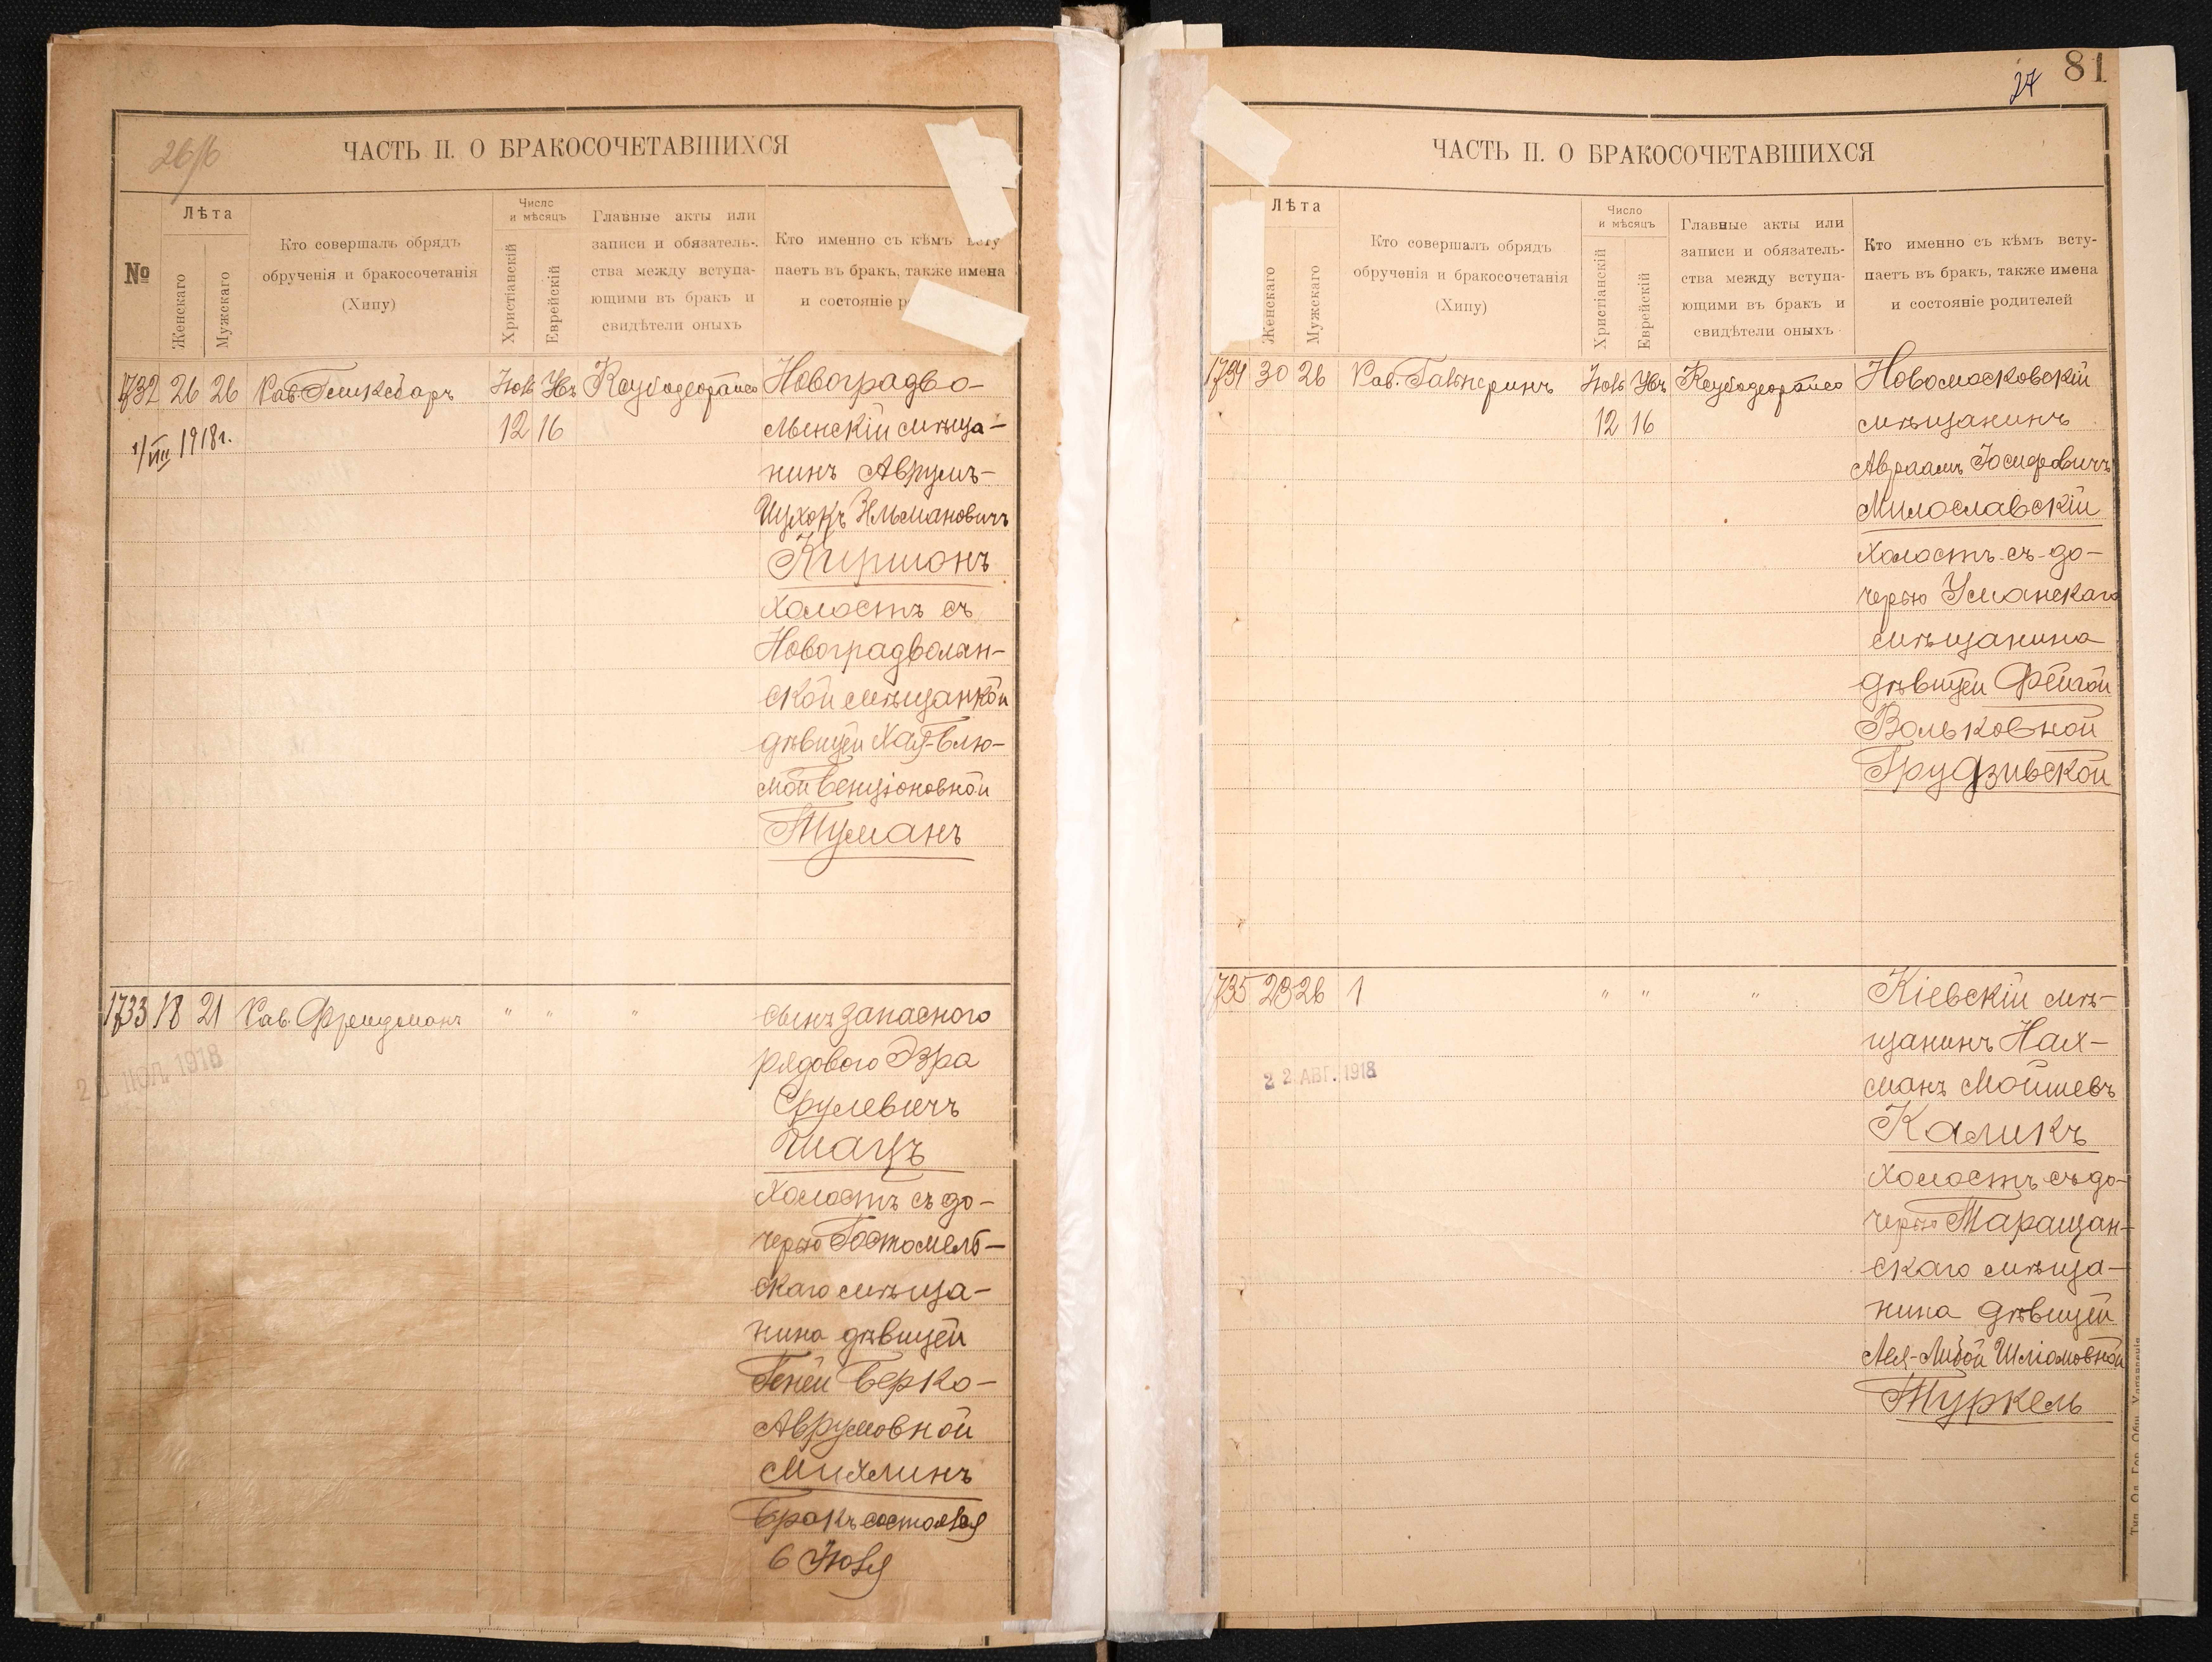 26/6
ЧАСТЬ II. О БРАКОСОЧЕТАВШИХСЯ
№
Лѣта
Женскаго
Мужскаго
Кто совершалъ обрядъ
обрученія и бракосочетанія
(Хипу)
Число
и мѣсяцъ
Христіанскій
Еврейскій
Главные акты или
записи и обязатель-
ства между вступа-
ющими въ бракъ и
свидѣтели оныхъ
Кто именно съ кѣмъ всту
паетъ въ бракъ, также имена
и состояніе р
1732 26 26 Рав.
12 16
1/VIII 1918 г.
Новоградво-
лынскій мѣща-
нинъ Аврумъ-
Ицхокъ Ильмановичъ
Киршонъ
холостъ съ
Новоградволын-
ской мѣщанкой
дѣвицей Хая-Блю-
мой Бенціоновной
Туманъ
1733 18 21 Рав. Френдманъ " " "
2 ІЮЛ. 1918
сынъ запасного
рядового Эзра
Срулевичъ
Шацъ
холостъ съ до-
черью Гостомель-
скаго мѣща-
нина дѣвицей
Геней Берко-
Аврумовной
Михлинъ
Бракъ состоялся
6 Іюля
27 81
ЧАСТЬ II. О БРАКОСОЧЕТАВШИХСЯ
Лѣта
Женскаго
Мужскаго
Кто совершалъ обрядъ
обрученія и бракосочетанія
(Хипу)
Число
и мѣсяцъ
Христіанскій
Еврейскій
Главные акты или
записи и обязатель-
ства между вступа-
ющими въ бракъ и
свидѣтели оныхъ
Кто именно съ кѣмъ всту-
паетъ въ бракъ, также имена
и состояніе родителей
30 26 Рав. Гальперинъ
12 16
Новомосковскій
мѣщанинъ
Авраамъ Іосифовичъ
Милославскій
холостъ съ до-
черью Уманскаго
мѣщанина
дѣвицей Фейгой
Вольковной
Грудзивской
1735 23 26 1 " " "
22 АВГ. 1918
Кіевскій мѣ-
щанинъ Нах-
манъ Мойшевъ
Каликъ
холостъ съ до-
черью Таращан-
скаго мѣща-
нина дѣвицей
Лея-Либой Шліомовной
Туркель